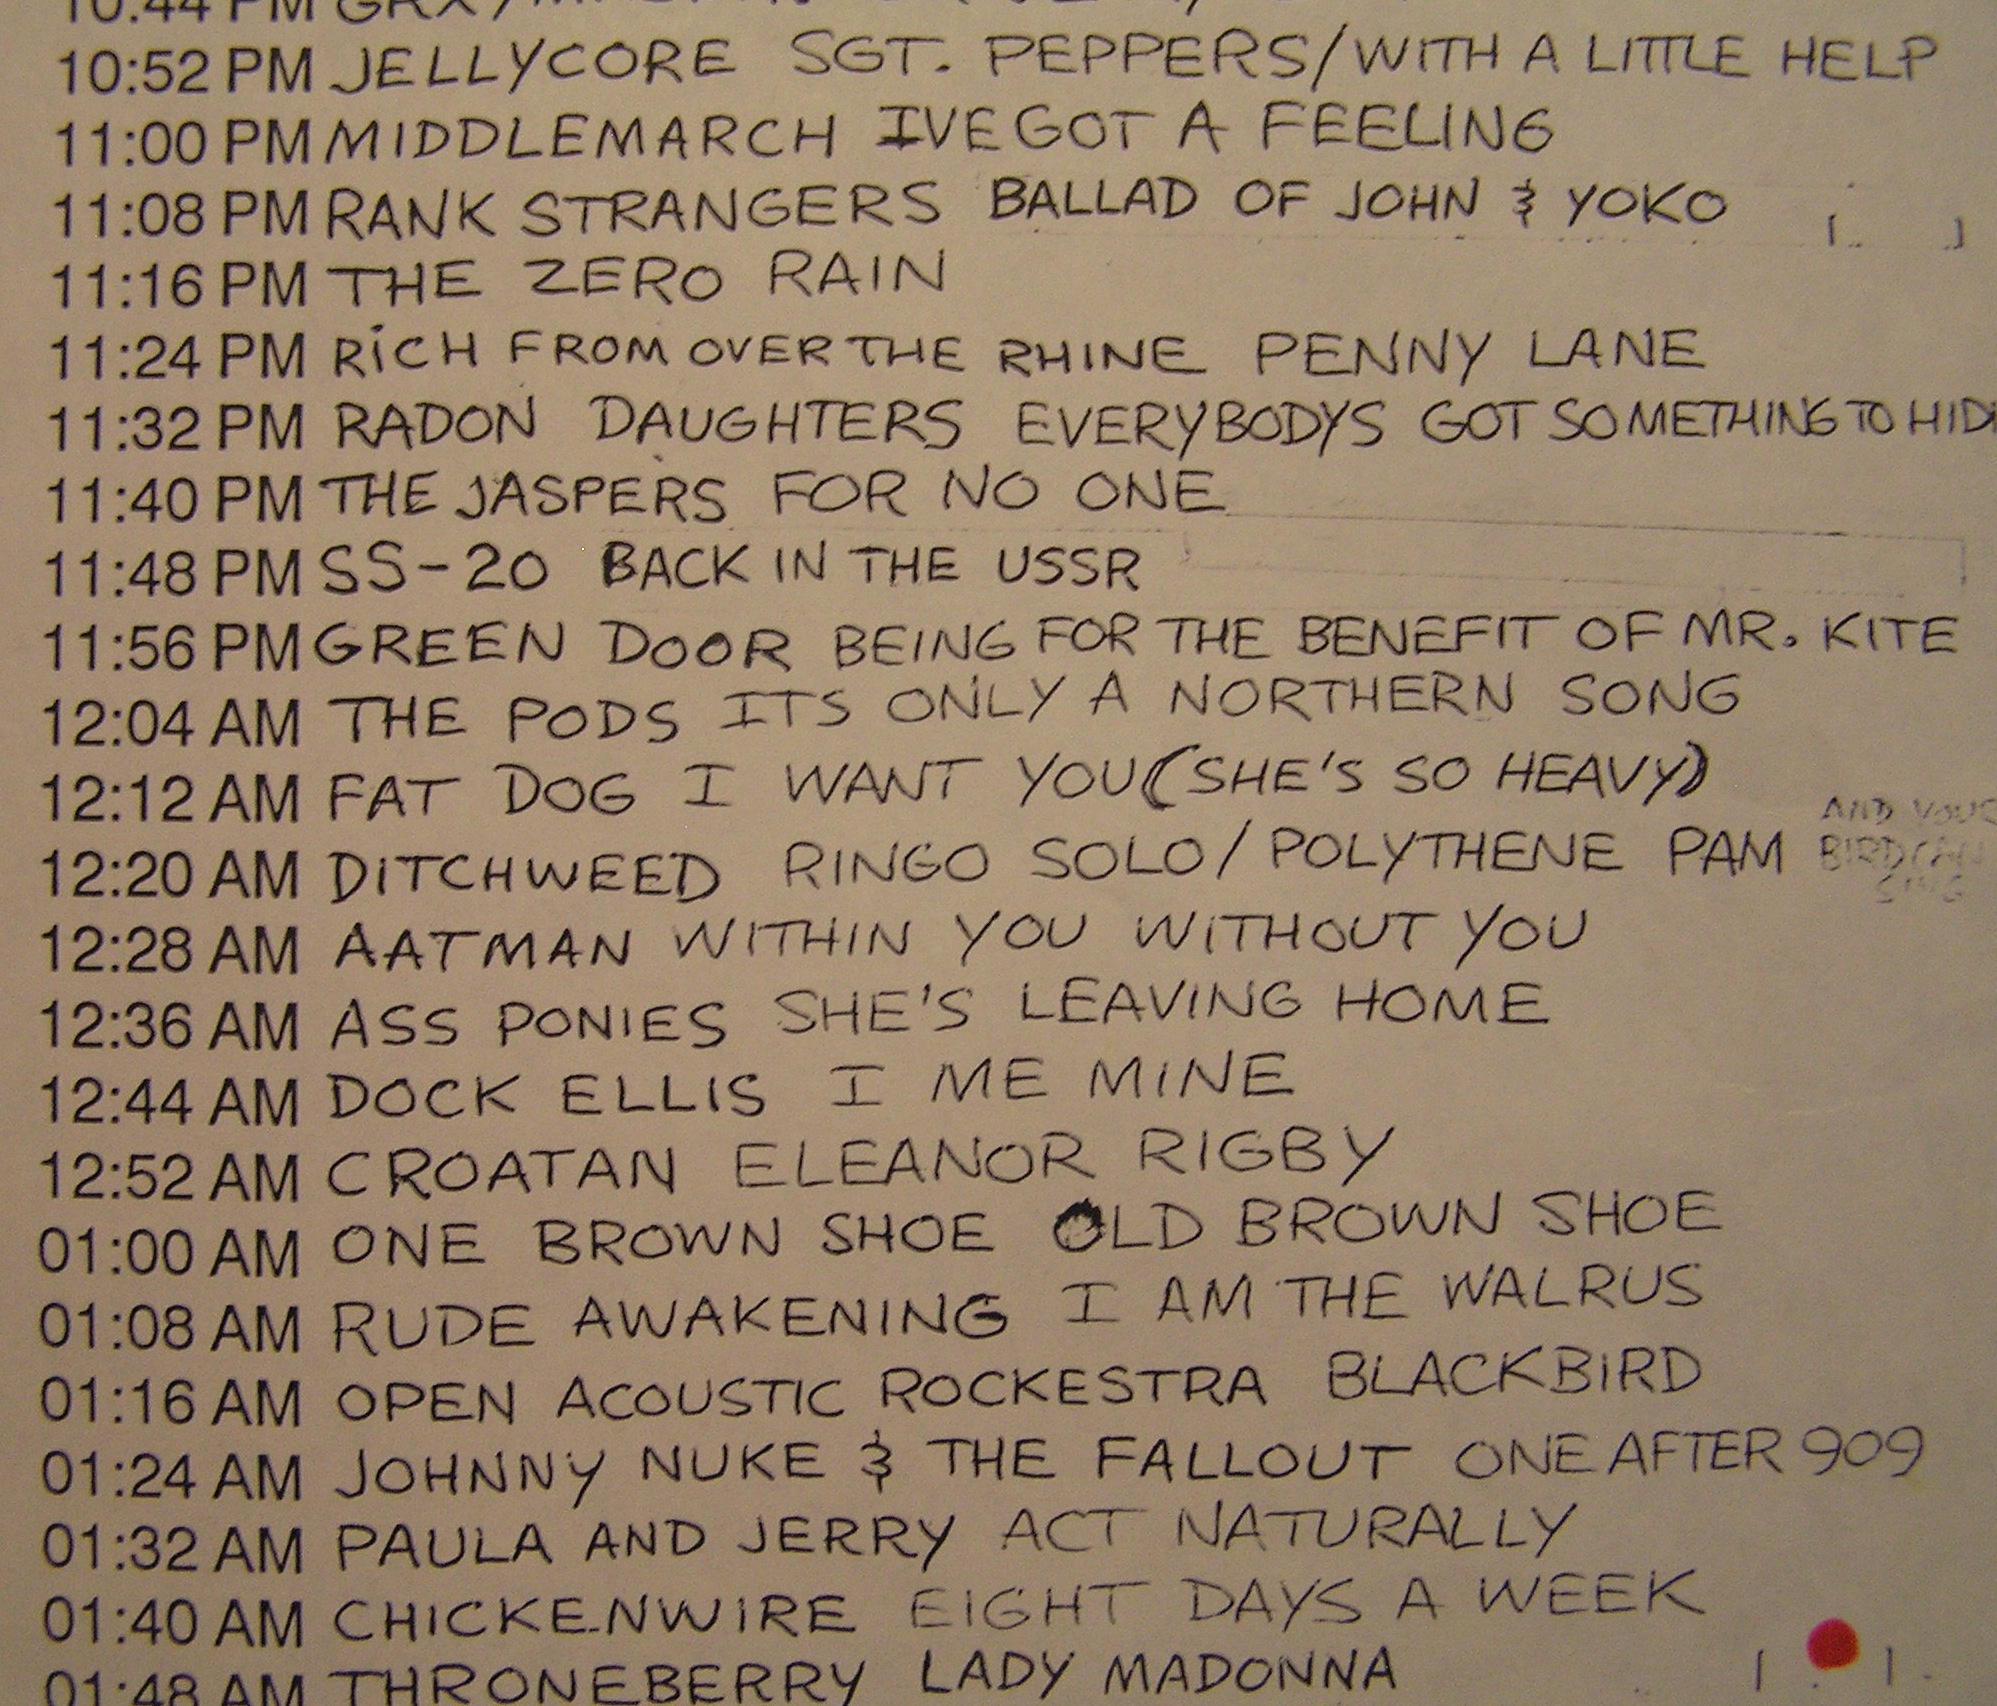 10:44 PM
10:52 PM JELLYCORE SGT. PEPPERS/WITH A LITTLE HELP
11:00 PM MIDDLEMARCH IVE GOT A FEELING
11:08 PM RANK STRANGERS BALLAD OF JOHN & YOKO
11:16 PM THE ZERO RAIN
11:24 PM RICH FROM OVER THE RHINE PENNY LANE
11:32 PM RADON DAUGHTERS EVERYBODYS GOT SOMETHING TO HID
11:40 PM THE JASPERS FOR NO ONE
11:48 PM SS-20 BACK IN THE USSR
11:56 PM GREEN DOOR BEING FOR THE BENEFIT OF MR. KITE
12:04 AM THE PODS ITS ONLY A NORTHERN SONG
12:12 AM FAT DOG I WANT YOU (SHE'S SO HEAVY)
12:20 AM DITCHWEED RINGO SOLO/POLYTHENE PAM
AND YOUR
BIRD CAN
SING
12:28 AM AATMAN WITHIN YOU WITHOUT YOU
12:36 AM ASS PONIES SHE'S LEAVING HOME
12:44 AM DOCK ELLIS I ME MINE
12:52 AM CROATAN ELEANOR RIGBY
01:00 AM ONE BROWN SHOE OLD BROWN SHOE
01:08 AM RUDE AWAKENING I AM THE WALRUS
01:16 AM OPEN ACOUSTIC ROCKESTRA BLACKBIRD
01:24 AM JOHNNY NUKE & THE FALLOUT ONE AFTER 909
01:32 AM PAULA AND JERRY ACT NATURALLY
01:40 AM CHICKENWIRE EIGHT DAYS A WEEK
01:48 AM THRONEBERRY LADY MADONNA